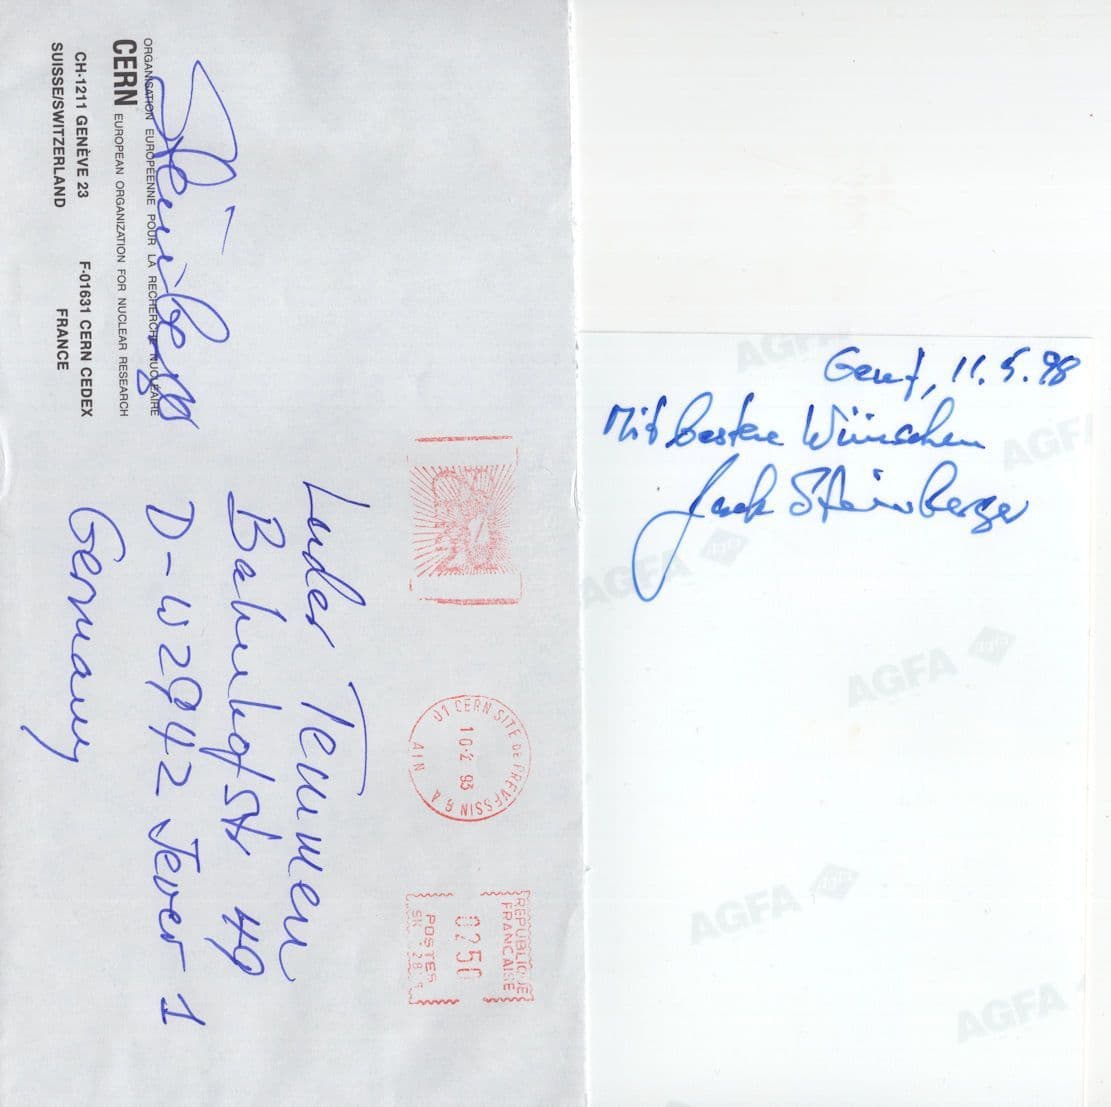 ORGANISATION EUROPÉENNE POUR LA RECHERCHE NUCLÉAIRE
CERN EUROPEAN ORGANIZATION FOR NUCLEAR RESEARCH
CH-1211 GENÈVE 23
SUISSE/SWITZERLAND
F-01631 CERN CEDEX
FRANCE
Steinberger
Luder Temmen
Bahnhofstr 49
D-W2942 Jever 1
Germany
01 CERN SITE DE PREVESSIN G A
10-2 93
AIN
REPUBLIQUE
FRANCAISE
0250
POSTES
Genf, 11.5.98
Mit besten Wünschen
Jack Steinberger
AGFA
AGFA
AGFA
AGFA
AGFA
AGFA